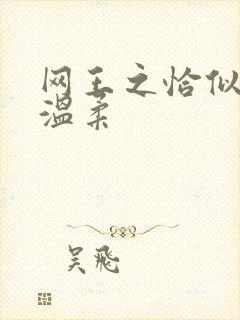 网王之恰似
温柔
吴飛